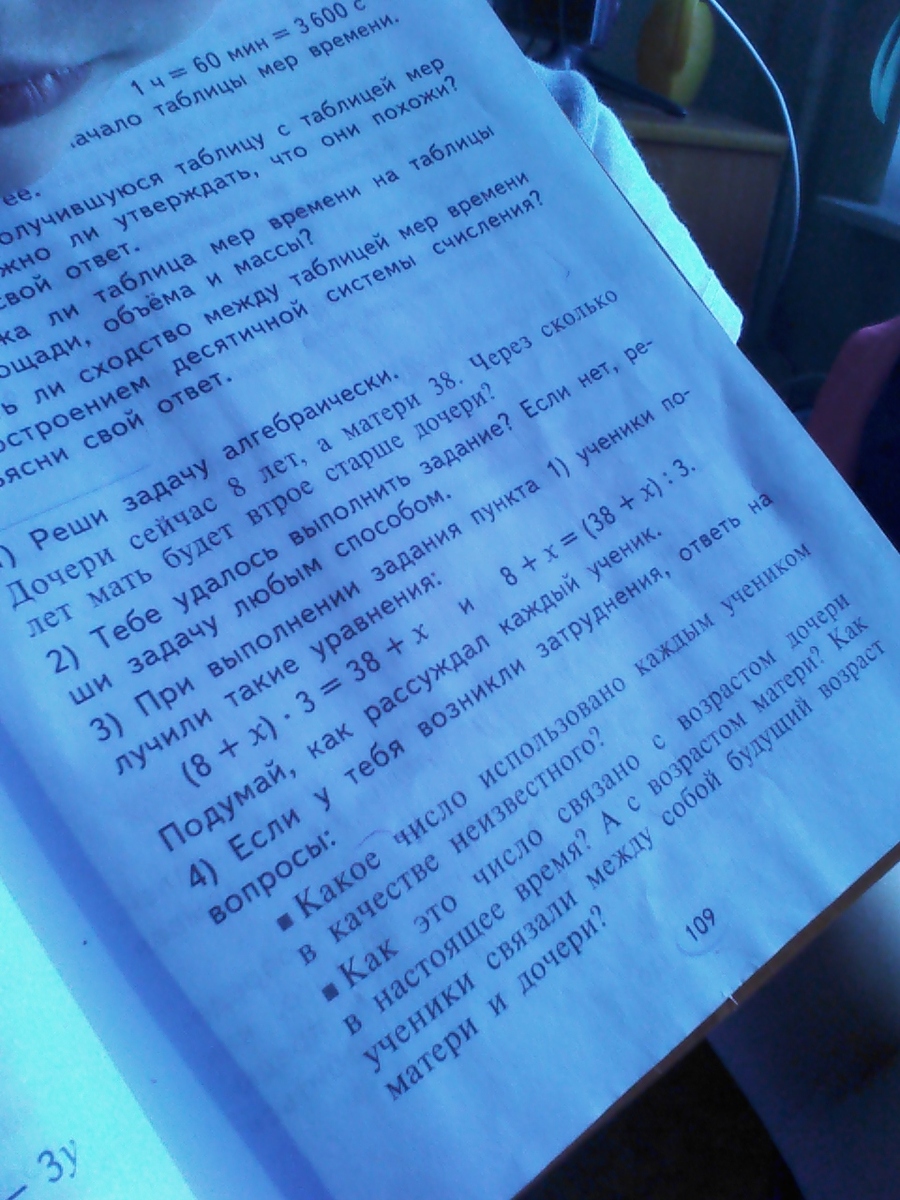 1 ч = 60 мин = 3600 с
таблицы мер времени.
ее.
таблицу с таблицей мер
ли утверждать, что они похожи?
свой ответ.
ли таблица мер времени на таблицы
объёма и массы?
ли сходство между таблицей мер времени
десятичной системы счисления?
свой ответ.
1) Реши задачу алгебраически.
Дочери сейчас 8 лет, а матери 38. Через сколько
лет мать будет втрое старше дочери?
2) Тебе удалось выполнить задание? Если нет, ре-
ши задачу любым способом.
3) При выполнении задания пункта 1) ученики по-
лучили такие уравнения:
(8 + x) · 3 = 38 + x и 8 + x = (38 + x) : 3.
Подумай, как рассуждал каждый ученик.
4) Если у тебя возникли затруднения, ответь на
вопросы:
▪ Какое число использовано каждым учеником
в качестве неизвестного?
▪ Как это число связано с возрастом дочери
в настоящее время? А с возрастом матери? Как
ученики связали между собой будущий возраст
матери и дочери?
109
– 3y